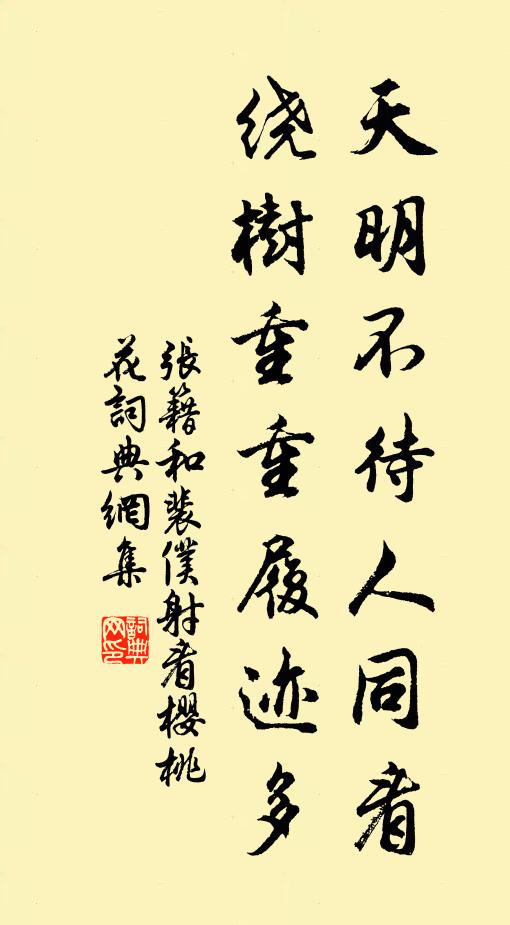 天明不待人同看
绕樹重重履迹多
張籍和裴僕射看櫻桃
花詞典網集
詞典
网印